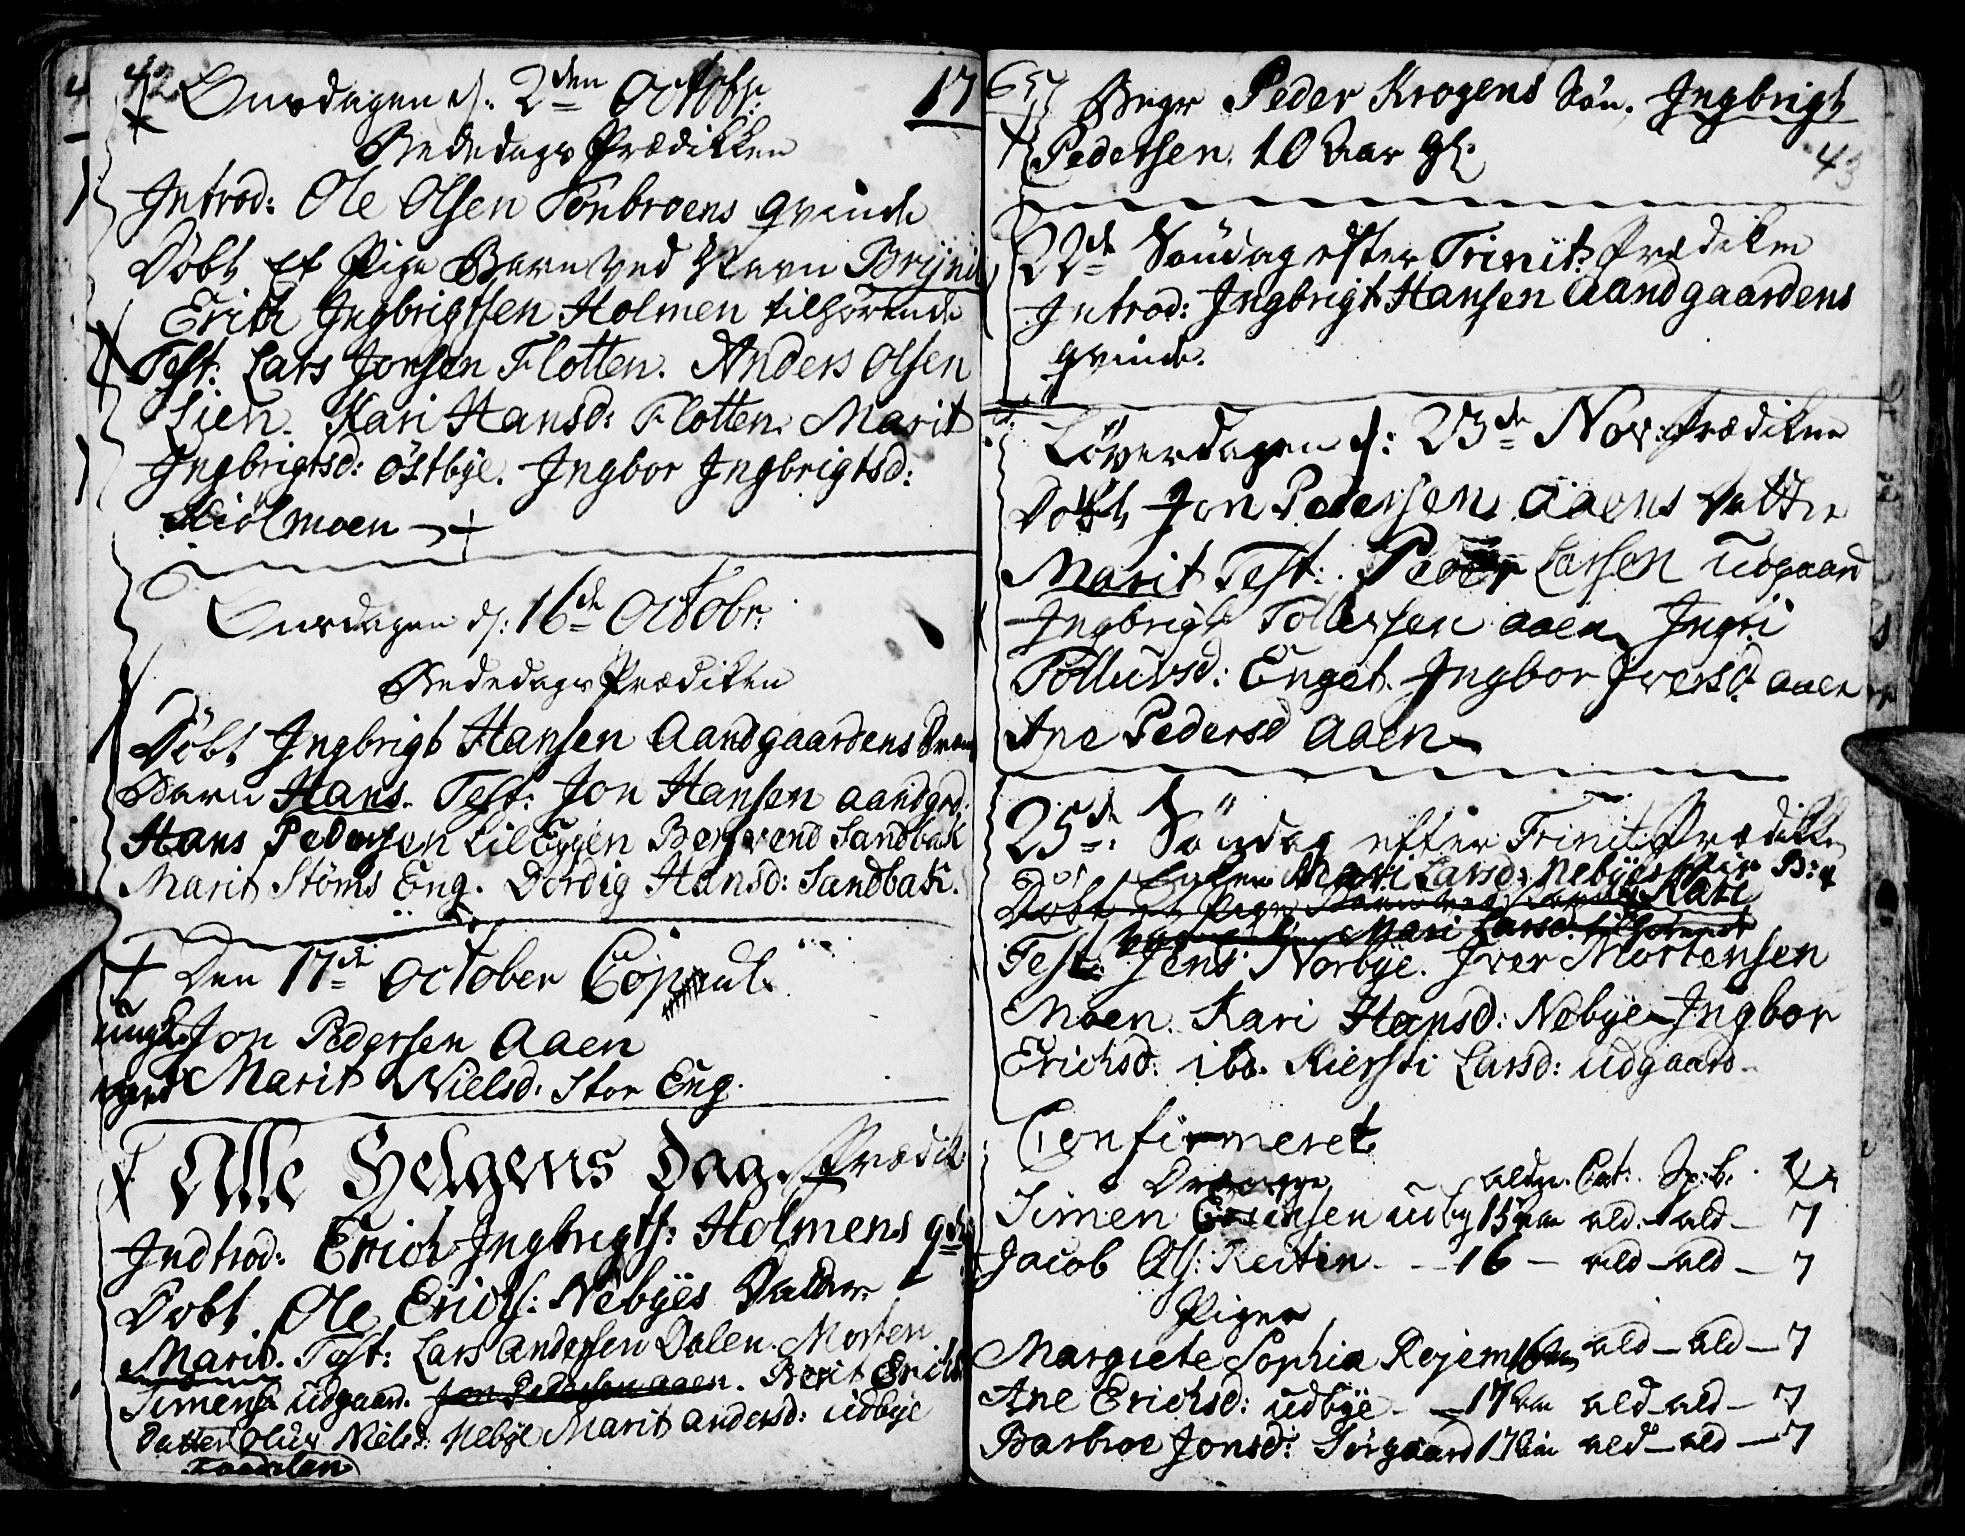 42 Onsdagen d. 2den Octobr: 17
Bededags Prædikken
Introd: Ole Olsen Tønbroens qvinde
Døbt Et Pige Barn ved Navn Brÿni
Erich Ingbrigtsen Holmen tilhørende
Test: Lars Jonsen Flotten. Anders Olsen
Lien. Kari Hansd: Flotten. Marit
Ingbrigtsd: Östbye. Ingbor Ingbrigtsd:
Kiölmoen
Onsdagen d: 16de Octobr:
Bededags Prædiken
Døbt Ingbrigt Hansen Aandgaardens
Barn Hans. Test: Jon Hansen aandgrd:
Hans Pedersen Lileggen Bersvend Sandbak
Marit Störns Eng. Dordig Hansd: Sandbak.
Den 17de October Copul.
ungk. Jon Pedersen Aaen
Marit Nielsd. Stor Eng.
Alle Helgens Dag. Prædik
Indtrod: Erich Ingbrigts: Holmens
Døbt Ole Erichs: Nebyes Datter
Marit. Test: Lars Andersen Dalen. Morten
Simens: udgaard. Jon Pedersen aaen. Berit Erichs
Datter Oluv Nielsd: Nebye Marit Andersd: udbye

65 Begr Peder Krogens Sön. Ingbrigt
Pedersen. 10 Aar gl: 43
22de Söndag efter Trinit: Prædiken
Introd: Ingbrigt Hansen Aandgaardens
qvinde.
Löverdagen d: 23de Nov: Prædiken
Døbt Jon Pedersen Aaens datter
Marit Test: Peder Larsen udgaard
Ingbrigt Tollefsen aaen Ingri
Pollursd: Enget. Ingbor Iversd. aaen
Ane Pedersd Aaen
25de Söndag efter Trinit: Prædiken
Mari Larsd: Nebyes B:
Døbt et Pige Barn ved Navn Kari
Mari Larsd: tilhørende
Test: Jens Norbye. Iver Mortensen
Moen. Kari Hansd: Nebye Ingbor
Erichsd: ibd. Kiersti Larsd: udgaard
Confirmeret
Drenge
Simen Erichsen udby 15 7
Jacob Ols: Reiten - - 16 - 7
Piger
Margrete Sophia Rejem 16 7
Ane Erichsd: udbye - 17 7
Barbroe Jonsd: Sørgaard 17 7